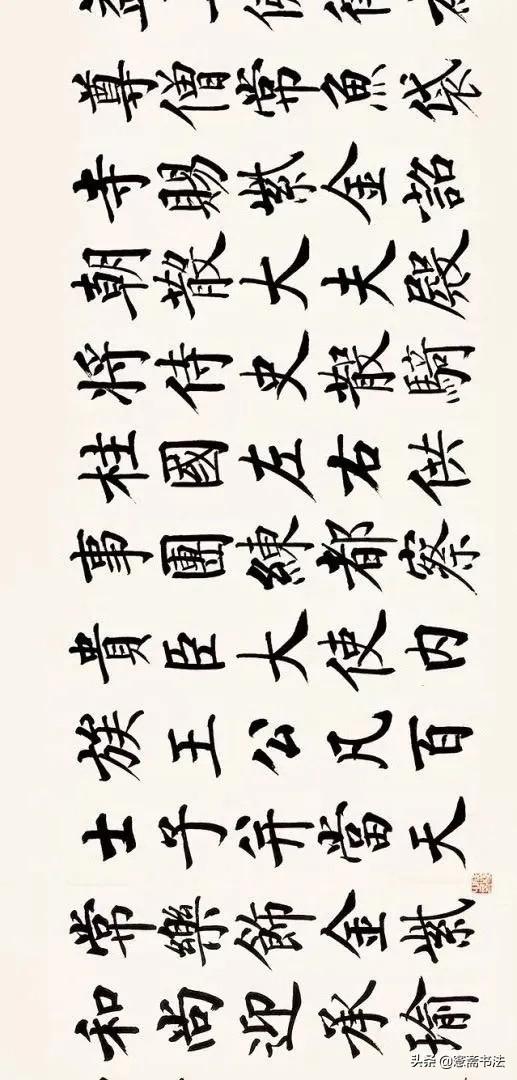 尊僧常魚袋
寺賜紫金詔
朝散大夫殿
將侍史散騎
柱國左右供
事團練都察
貴臣大使内
族王公凡百
士子并當天
常樂飾金紫
和尚迎承瑜
头条 @愙斋书法